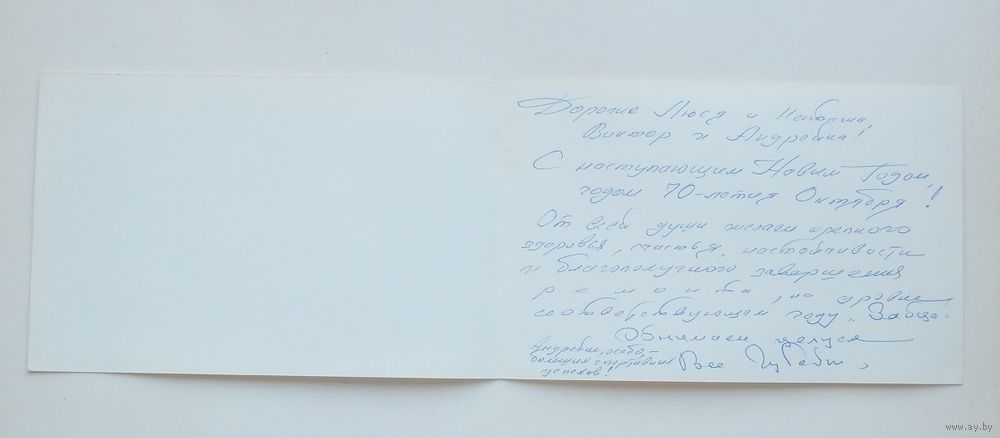 Дорогие Люся и
Виктор и Андрейка!
С наступающим Новым Годом,
годом 70-летия Октября!
От всей души желаем крепкого
здоровья, счастья, настойчивости
и благополучного завершения
ремонта, на уровне
соответствующем году
Обнимаем целуем
Все
Андрейке, особо-
больших спортивных
успехов!
www.ay.by